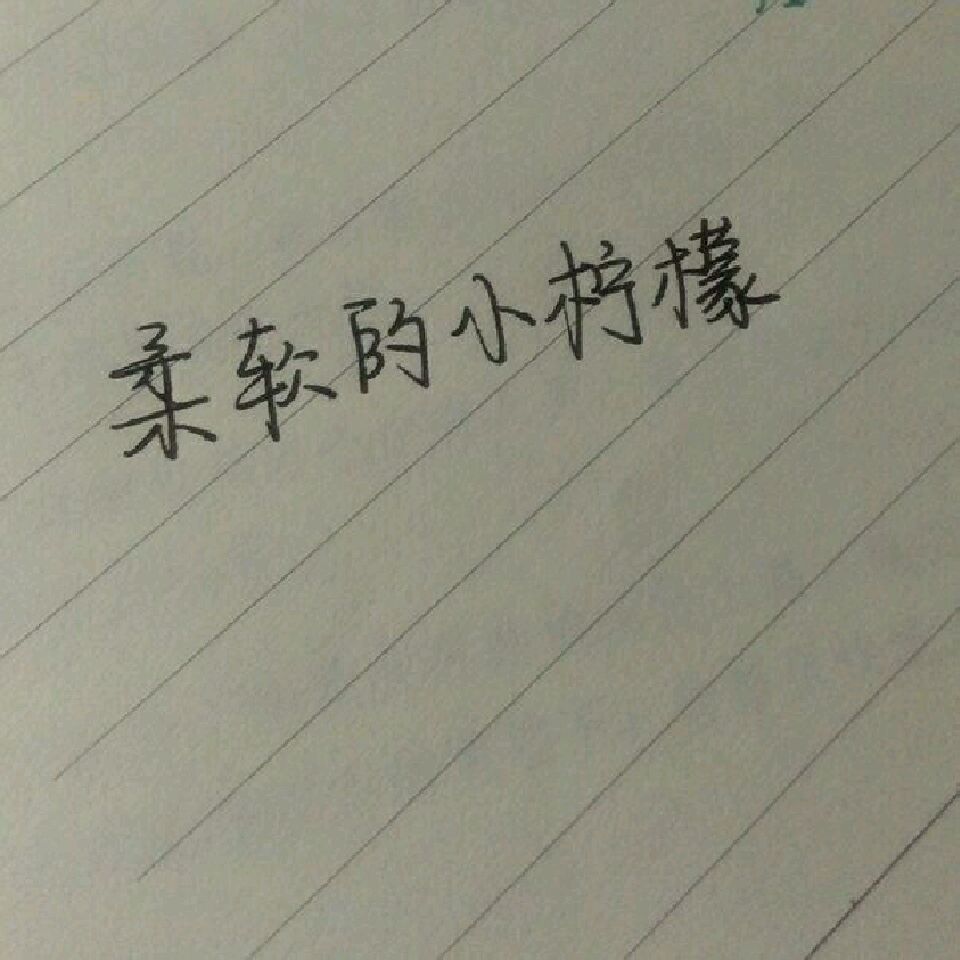 柔软的小柠檬